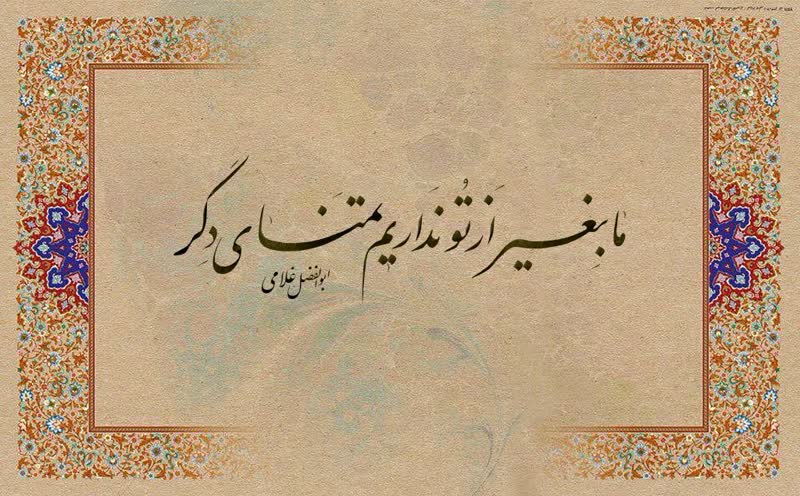 ما بِغیر اَز تُو نَداریم تمَنای دِگر
ابوالفضل علامی